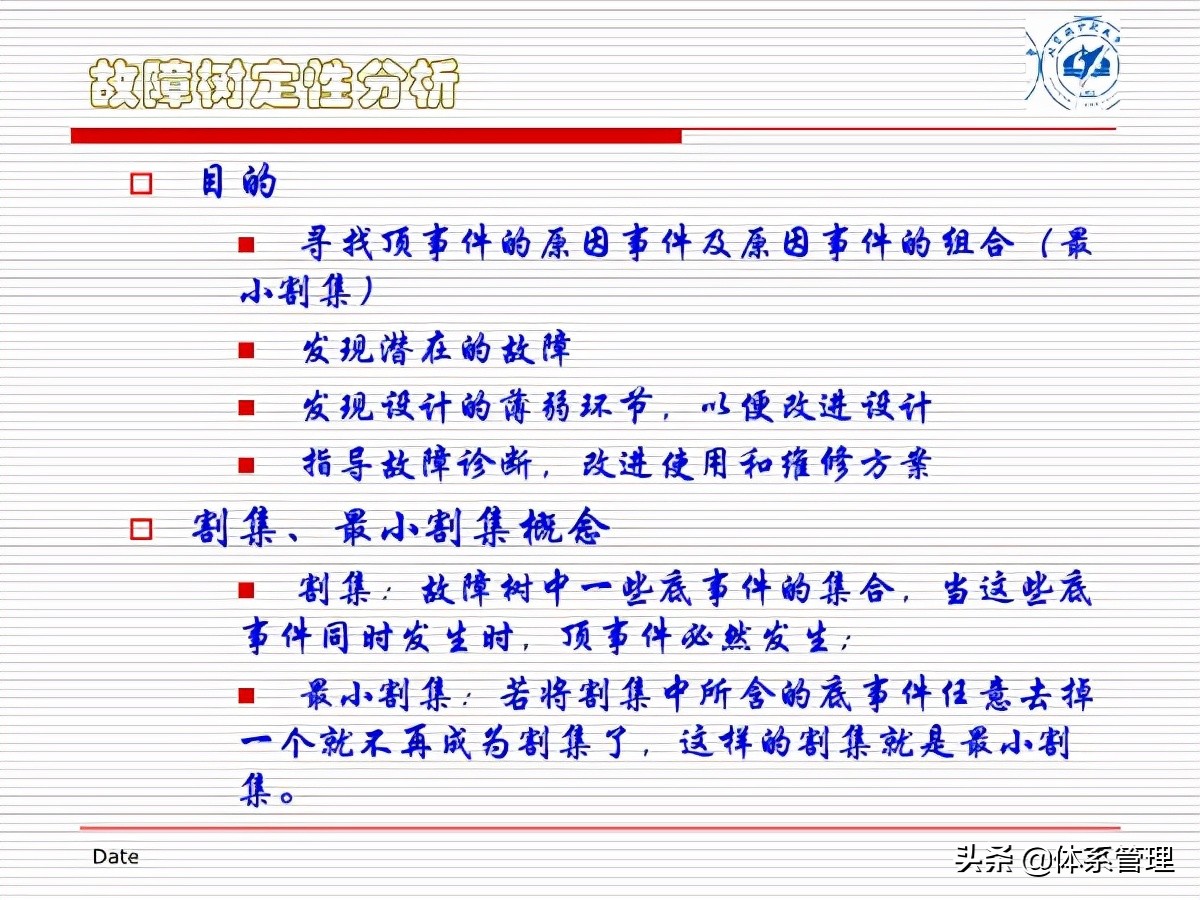 故障树定性分析
目的
寻找顶事件的原因事件及原因事件的组合（最
小割集）
发现潜在的故障
发现设计的薄弱环节，以便改进设计
指导故障诊断，改进使用和维修方案
割集、最小割集概念
割集：故障树中一些底事件的集合，当这些底
事件同时发生时，顶事件必然发生；
最小割集：若将割集中所含的底事件任意去掉
一个就不再成为割集了，这样的割集就是最小割
集。
Date
头条 @体系管理